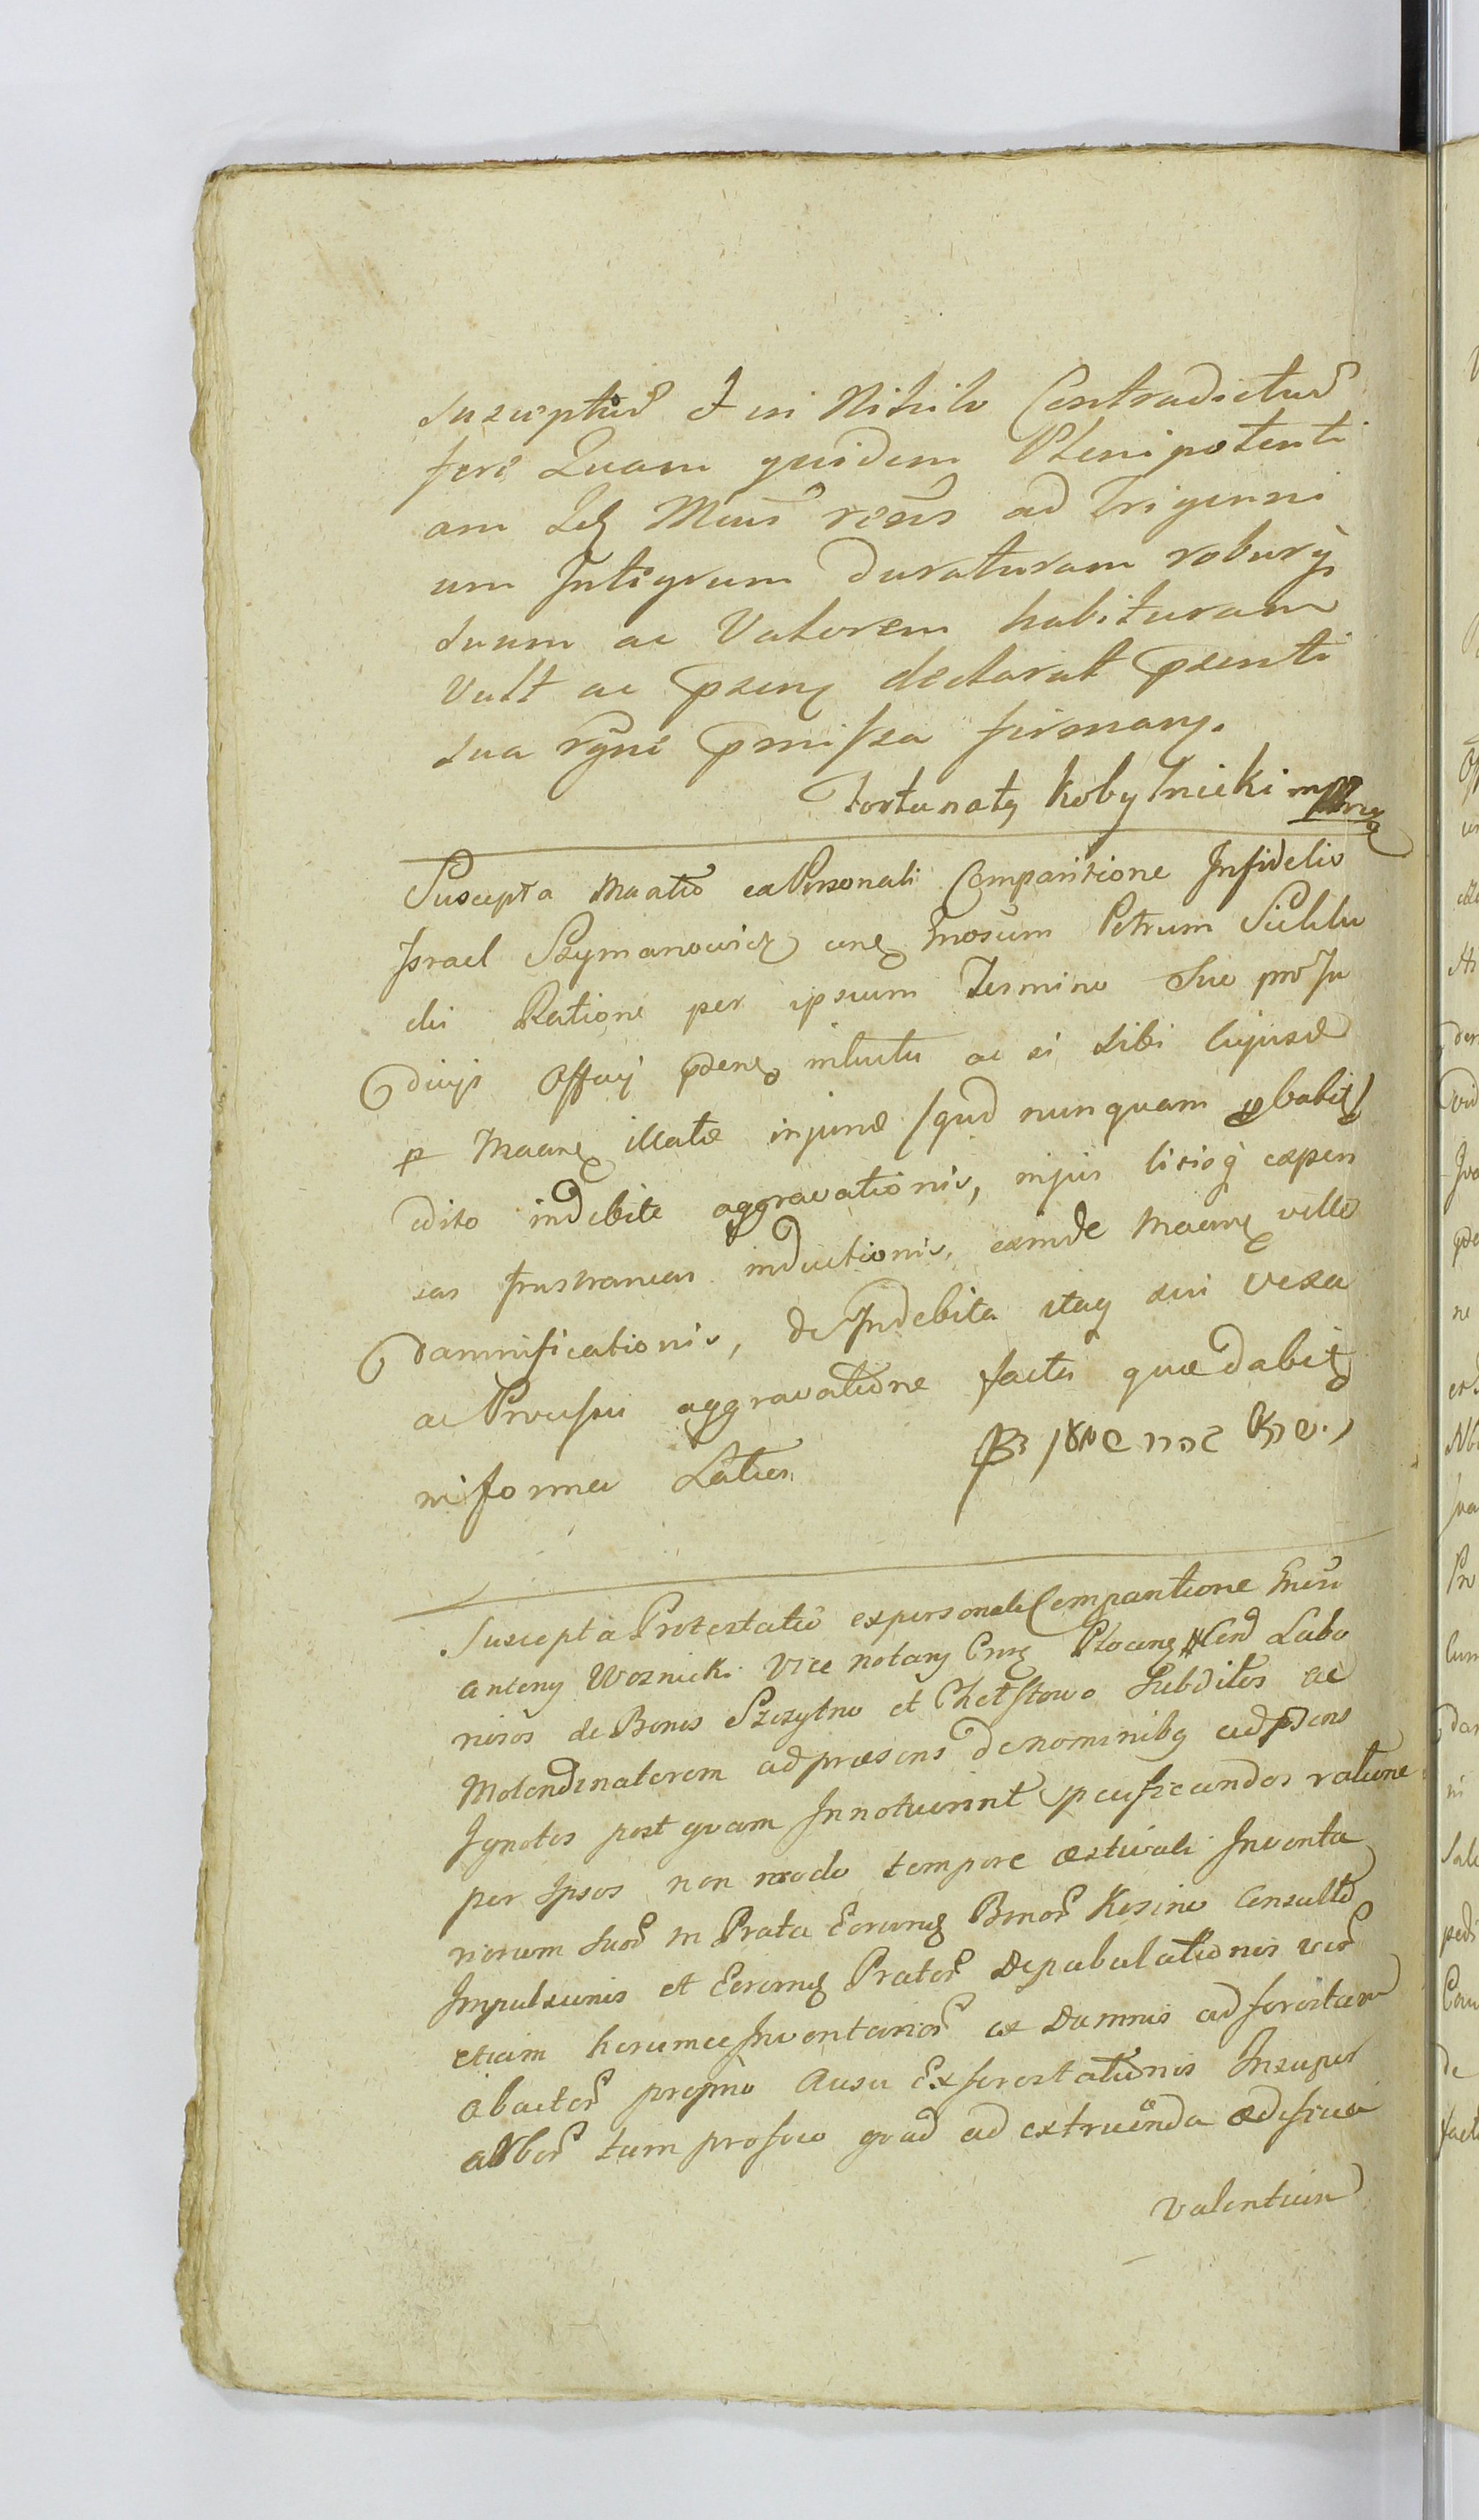 susceptur̃ et in Nihilo Contradictur̃
fere Quam quidem Plenipotenti
am Idq Mcus rens ad Trigenni
um Integrum duraturam roburq̃
suum ac Valorem habituram
Vult ac psenq declarat psenti
sua rgne pmissa firmans.
Fortunatq Kobylnicki mpria
Suscepta Maatio ex Personali Comparitione Infidelis
Israel Szymanowicz cnq Gnosum Petrum Siehlu
cki Ratione per ipsum Termino Suo pro Ju
dicijs Offcij pdenq inductu ac ei sibi Cujusd
p Maanq illatae injuriae /qud nunquam pbabit/
edito indebite aggravationis, injus litisq expen
sas frustraneas inductionis, exinde Maanq velle
damnificationis, de Indebita itaq sui vexa
ac Processu aggravatione facta quae dabit
in forma Latiori
Suscepta Protestatio ex personali Comparitione Gnesi
Antony Woznicki Vice Notary Cnsq Plocenq Cend Labo
riosos de Bonis Szczytno et Chelstowo Subditos ac
Molendinatorem ad praesens de nominibq ad psens
Ignotos post quam Innotuerint pcusicandos ratione
per Ipsos non modo tempore aestivali Inventa
riorum suor̃ in Prata Eorumq Bonor̃ Kosino Consulto
Impulsionis et Eorumq Prator̃ Depabulationis ver̃
etiam horumce Inventarior̃ ex Damnis ad forestam
abactor̃ proprio Ausu Exforestationis Insuper
arbor̃ tam profoco quad ad extruenda aedificia
Valentium